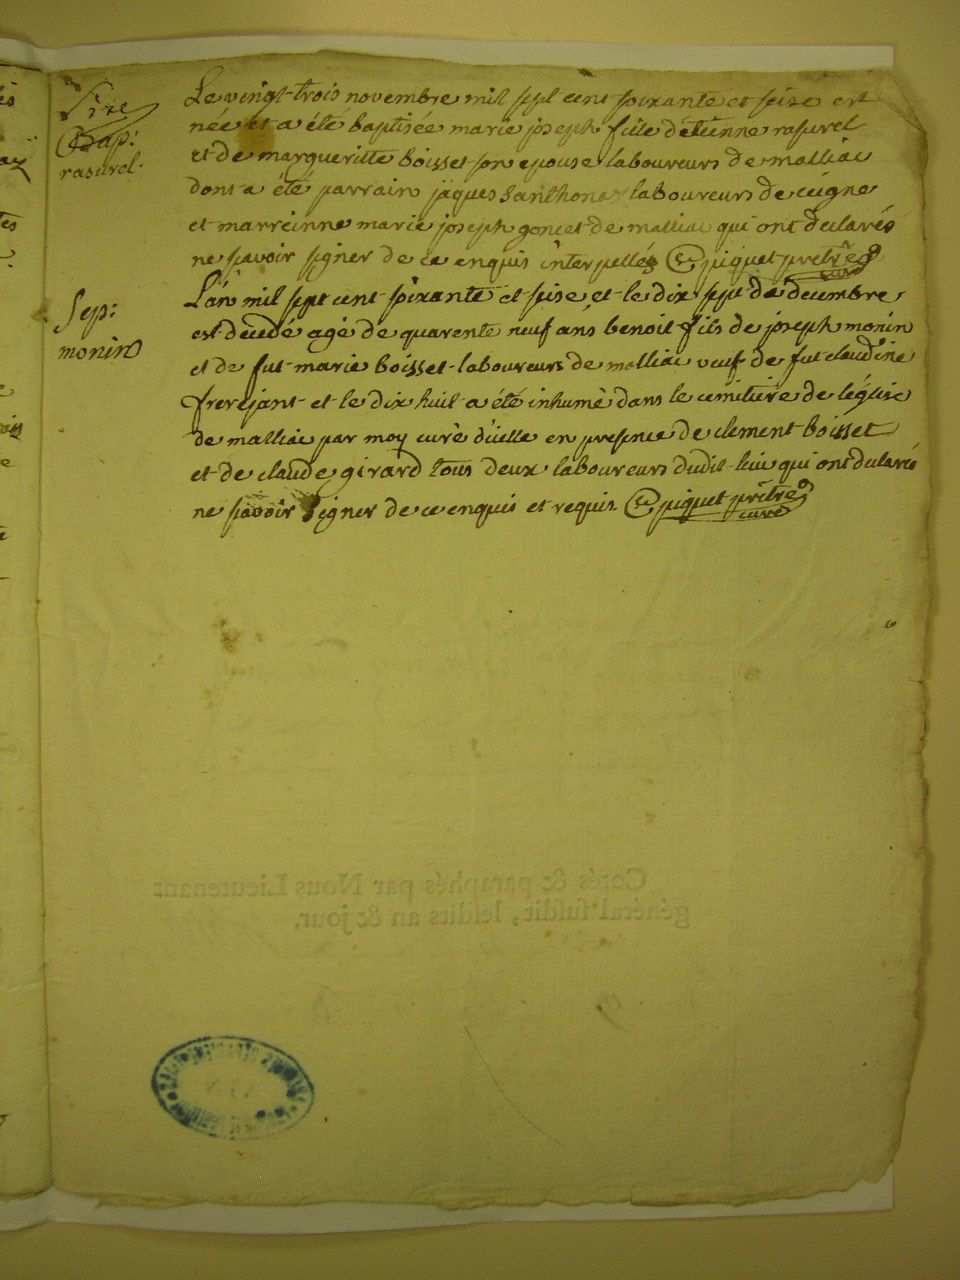 Size
Bap:
rasurel.
Le vingt-trois novembre mil sept cent soixante et seise est
née et a été baptisée marie joseph fille d'étienne rasurel
et de margueritte boisset son epouse laboureurs de malliac
dont a été parrain jaques laboureurs de ceigne
et marreinne marie joseph goncet de malliac qui ont declarés
ne sçavoir signer de ce enquis interpellés piquet prêtre
curé
Sep:
monin
L'an mil sept cent soixante et seise et le dix sept de decembre
est décédé agé de quarente neuf ans benoit fils de joseph monin
et de fut marie boisset laboureurs de malliac veuf de fut claudine
frerejant et le dix huit a été inhumé dans le cemitière de l'église
de malliac par moy curé d'icelle en presence de clement boisset
et de claude girard tous deux laboureurs dudit lieu qui ont declaré
ne sçavoir signer de ce enquis et requis piquet prêtre
curé
Cotés & paraphés par Nous Lieutenant
général susdit, lesdits an & jour.